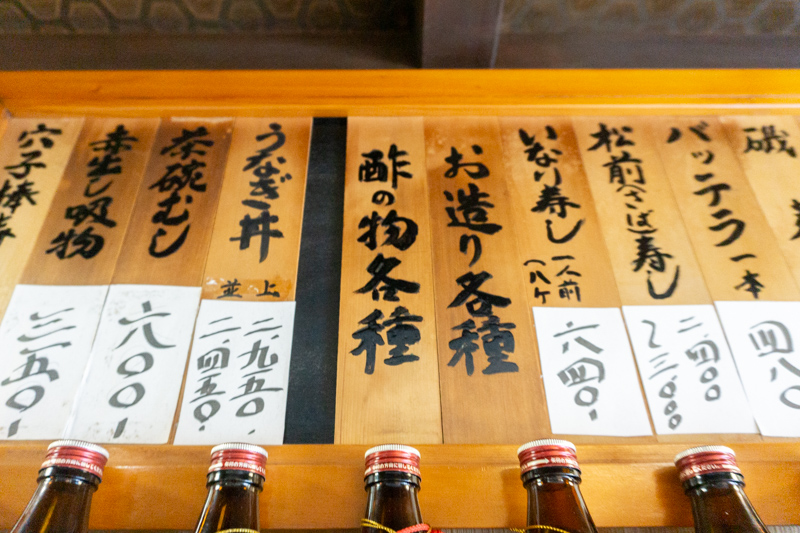 磯
バッテラ 一本
四八〇
松前(さば)寿し
二、四〇〇
二、三〇〇
いなり寿し 一人前(八ケ)
六四〇、
お造り各種
酢の物各種
うなぎ丼
上 二、九五〇、
並 二、四五〇、
茶碗むし
六〇〇、
赤出し吸物
三五〇、
穴子棒寿